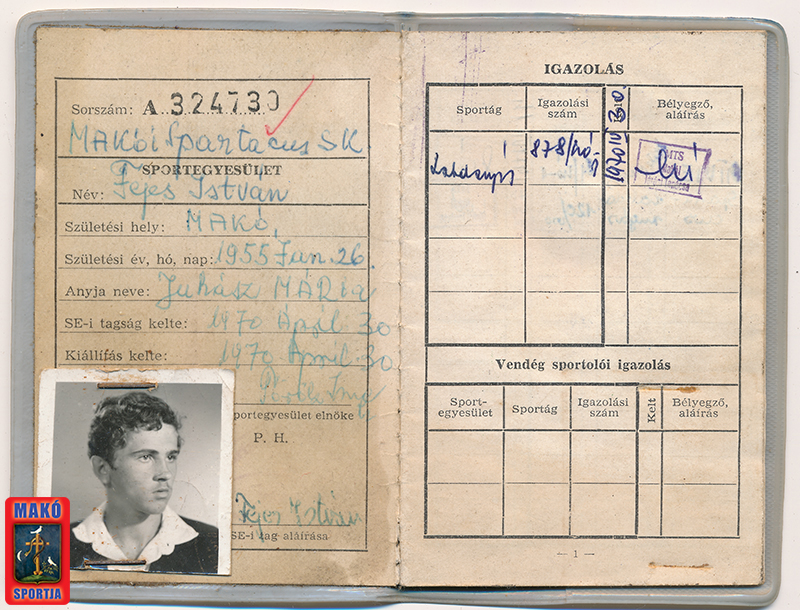 Sorszám: A 324730
MAKÓI Spartacus SK.
SPORTEGYESÜLET
Név: Fejes István
Születési hely: MAKÓ,
Születési év, hó, nap: 1955 Jan. 26.
Anyja neve: Juhász MÁRIA
SE-i tagság kelte: 1970 April 30
Kiállítás kelte: 1970 April 30
portegyesület elnöke
P. H.
Fejes István
SE-i tag aláírása
MAKÓ
SPORTJA
IGAZOLÁS
Sportág
Igazolási szám
1970 IV 30.
Bélyegző, aláírás
Labdarúgó
878/Mó-1
Vendég sportolói igazolás
Sport-egyesület
Sportág
Igazolási szám
Kelt
Bélyegző, aláírás
— 1 —